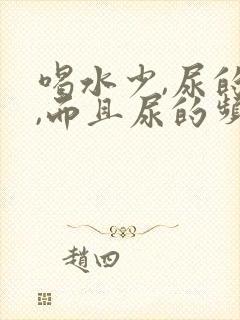 喝水少,尿的
,而且尿的频
趙四